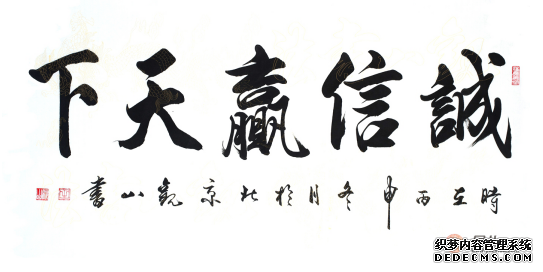 誠信贏天下
時在丙申冬月於北京觀山書
織梦内容管理系统
DEDECMS.COM